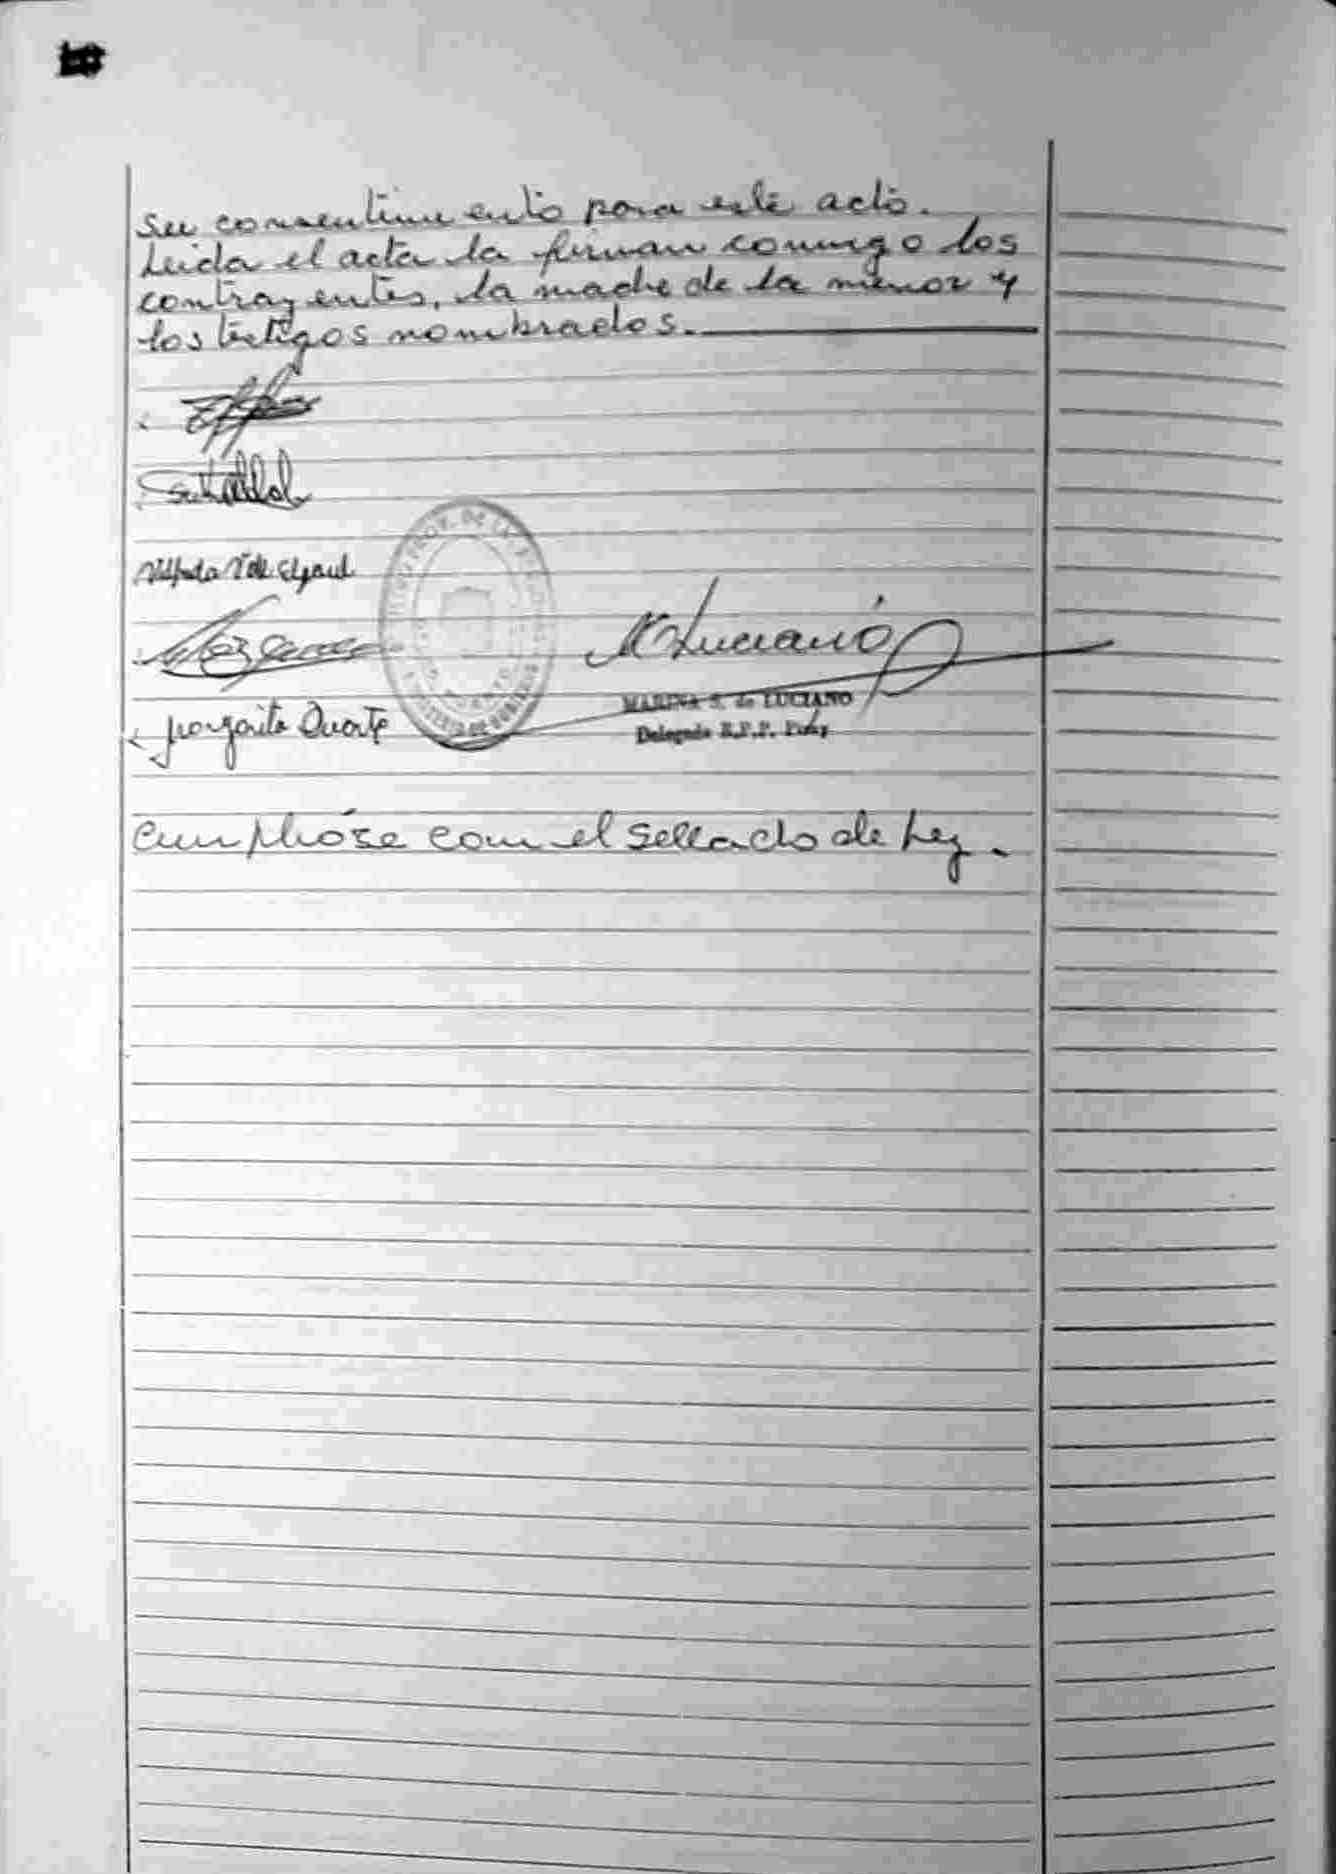 su consentimiento para este acto.
Leida el acta la firman conmigo los
contrayentes, la madre de la menor y
los testigos nombrados.
Margarita Duarte
M Luciano
MARINA S. de LUCIANO
Delegada R.P.P.
Cumplióse con el sellado de Ley.